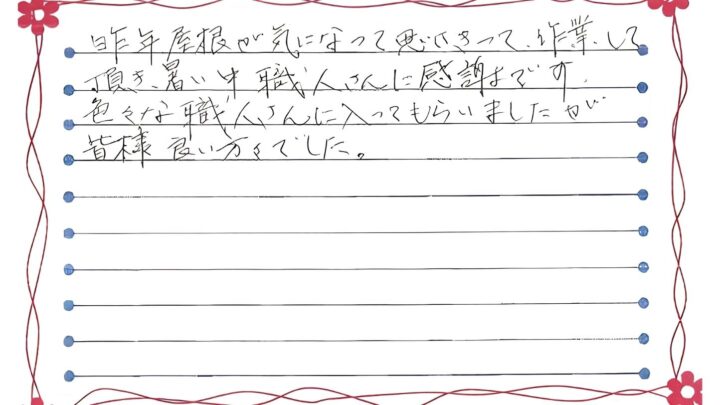 昨年屋根が気になって思いきって、作業して
頂き、暑い中職人さんに感謝です。
色々な職人さんに入ってもらいましたが
皆様良い方々でした。